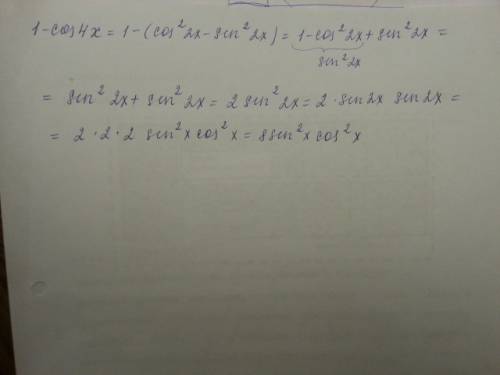 1-cos4x = 1-(cos²2x-sin²2x) = 1-cos²2x + sin²2x =
sin²2x
= sin²2x + sin²2x = 2 sin²2x = 2 · sin2x sin2x =
= 2 · 2 · 2 sin²x cos²x = 8sin²x cos²x